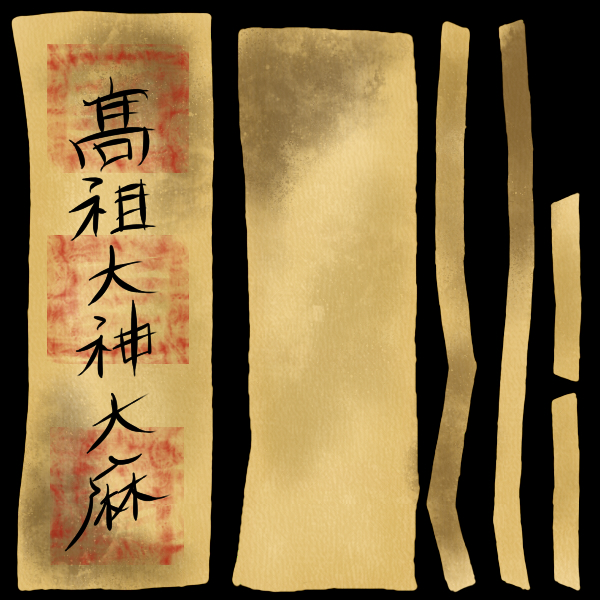 髙祖大神大麻